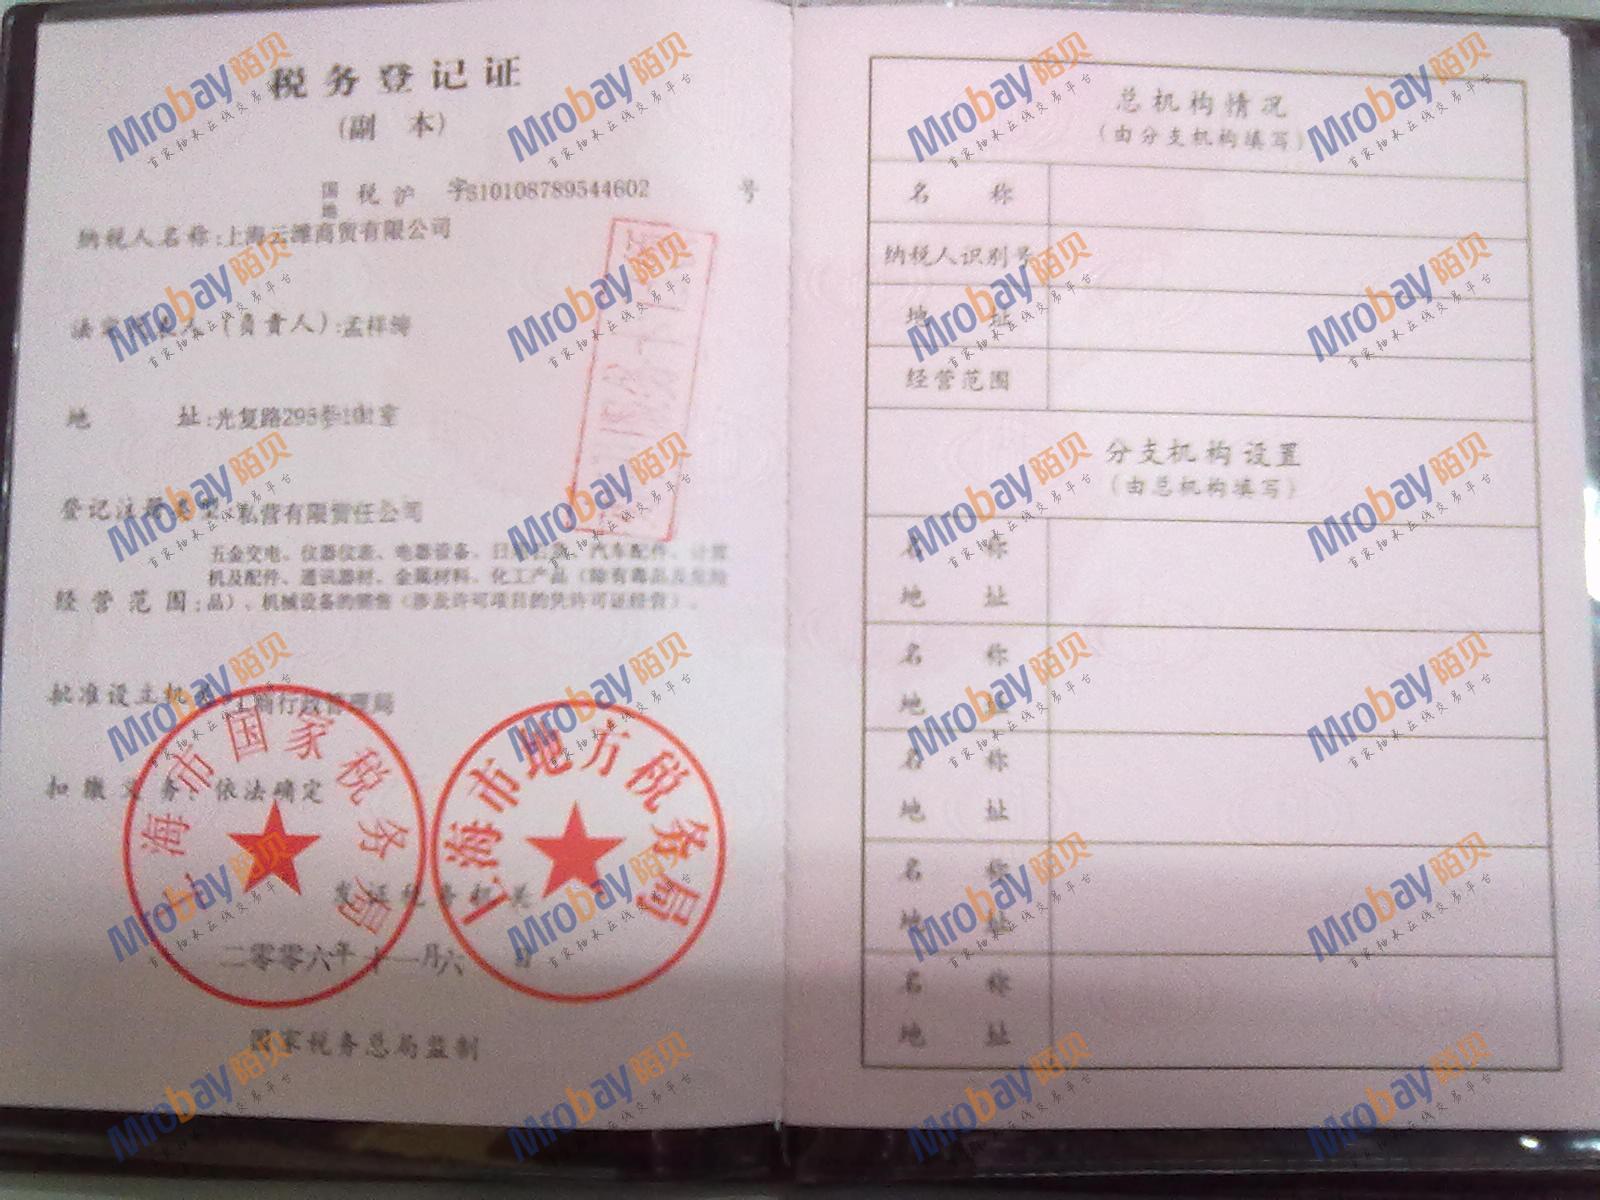 税务登记证
(副 本)
国
地 税沪 字310108789544602 号
纳税人名称:上海云滩商贸有限公司
法定代表人(负责人):孟祥
地 址:光复路295号
登记注册类型:私营有限责任公司
五金交电、仪器仪表、电器设备、日用百货、汽车配件、计算
机及配件、通讯器材、金属材料、化工产品(除有毒品及危险
经营范围:品)、机械设备的销售(涉及许可项目的凭许可证经营)。
批准设立机关:工商行政管理局
扣缴义务:依法确定
发证税务机关
二零零六年十一月六日
上海市国家税务局
上海市地方税务局
国家税务总局监制
总机构情况
(由分支机构填写)
名 称
纳税人识别号
地 址
经营范围
分支机构设置
(由总机构填写)
名 称
地 址
名 称
地 址
名 称
地 址
名 称
地 址
名 称
地 址
Mrobay陌贝
首家抽承在线交易平台